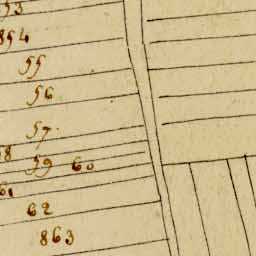 53
854
55
56
57
58
59 60
61
62
863